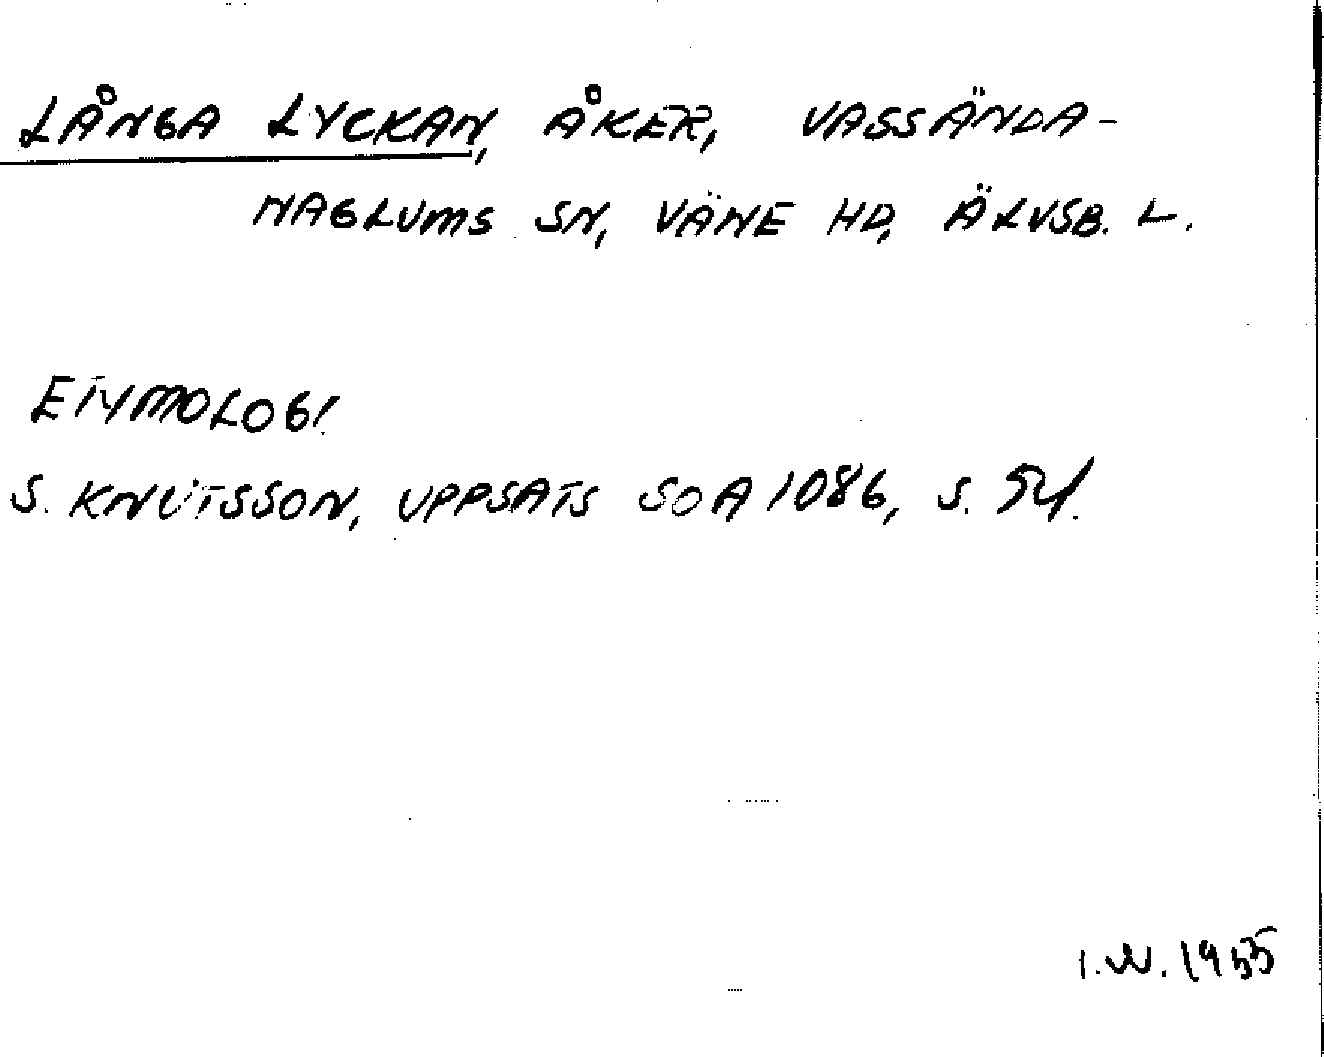 LÅNGA LYCKAN, ÅKER, VASSÄNDA-
NAGLUMS SN, VÄNE HD, ÄLVSB. L.
ETYMOLOGI
S. KNUTSSON, UPPSATS SOA 1086, S.
I.W. 1955